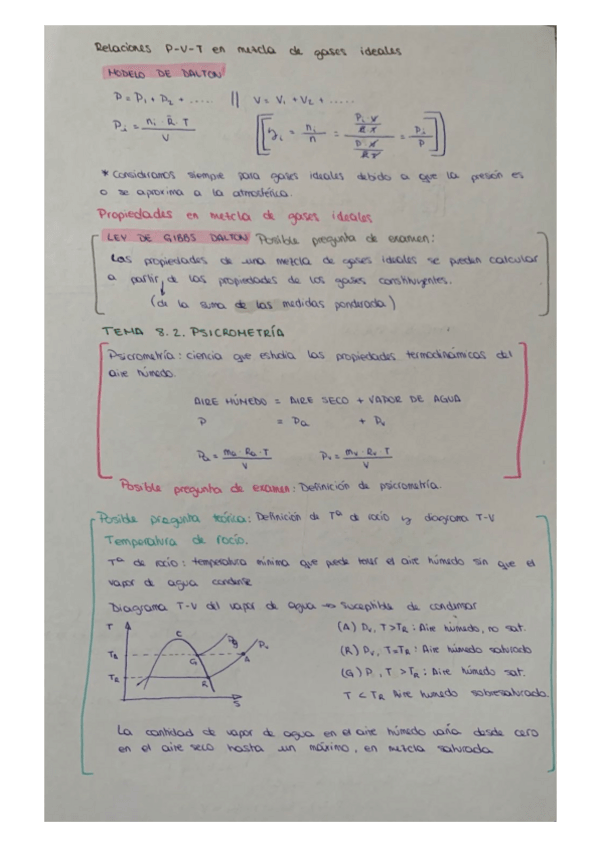 Relaciones P-V-T en mezcla de gases ideales
MODELO DE DALTON
P = P₁ + P₂ + ..... || V = V₁ + V₂ + .....
Pᵢ = nᵢ · R̄ · T / V [[ yᵢ = nᵢ / n = (Pᵢ · V / R̄ · T) / (P · V / R̄ · T) = Pᵢ / P ]]
* Consideramos siempre para gases ideales debido a que la presión es
o se aproxima a la atmosférica.
Propiedades en mezcla de gases ideales
LEY DE GIBBS DALTON Posible pregunta de examen:
Las propiedades de una mezcla de gases ideales se pueden calcular
a partir de las propiedades de los gases constituyentes.
(de la suma de las medidas ponderada)
TEMA 8.2. PSICROMETRÍA
Psicrometría: ciencia que estudia las propiedades termodinámicas del
aire húmedo.
AIRE HÚMEDO = AIRE SECO + VAPOR DE AGUA
P = Pa + Pv
Pa = ma · Ra · T / V Pv = mv · Rv · T / V
Posible pregunta de examen: Definición de psicrometría.
Posible pregunta teórica: Definición de Tª de rocío y diagrama T-V
Temperatura de rocío.
Tª de rocío: temperatura mínima que puede tener el aire húmedo sin que el
vapor de agua condense
Diagrama T-V del vapor de agua → Susceptible de condensar
T C Pg Pv
TR G A
TR R
S
(A) Pv, T > TR: Aire húmedo, no sat.
(R) Pv, T = TR: Aire húmedo saturado
(G) P, T > TR: Aire húmedo sat.
T < TR Aire humedo sobresaturado.
La cantidad de vapor de agua en el aire húmedo varía desde cero
en el aire seco hasta un máximo, en mezcla saturada